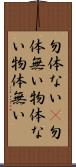 勿体ない 勿
体無い物体な
い物体無い